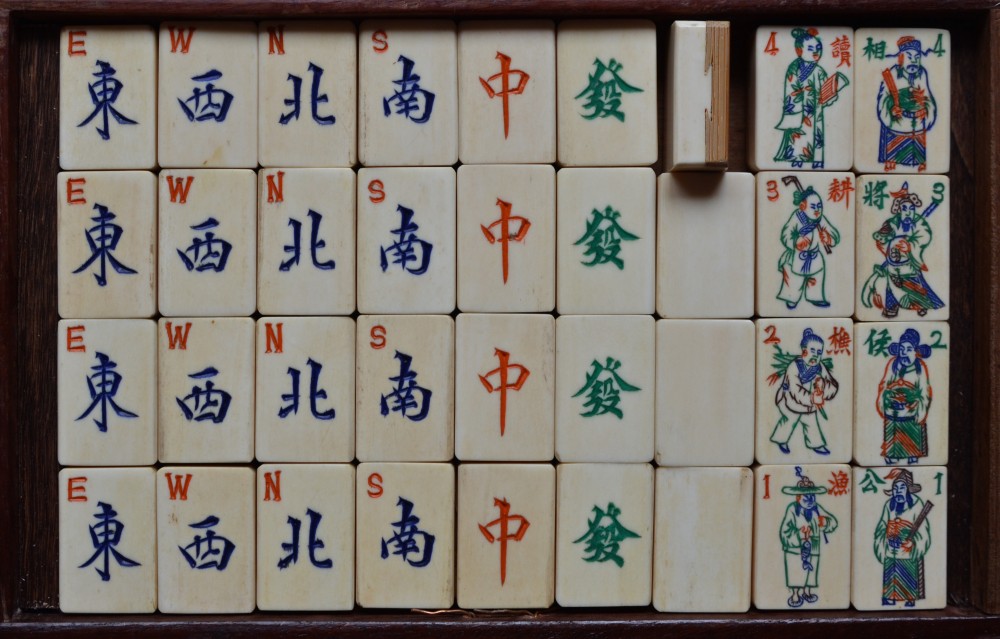 E 東 W 西 N 北 S 南 中 發 4 讀 相 4
E 東 W 西 N 北 S 南 中 發 3 耕 將 3
E 東 W 西 N 北 S 南 中 發 2 樵 侯 2
E 東 W 西 N 北 S 南 中 發 1 漁 公 1